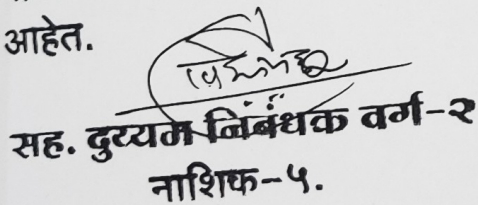 आहेत.
सह. दुय्यम निबंधक वर्ग-२
नाशिक-५.